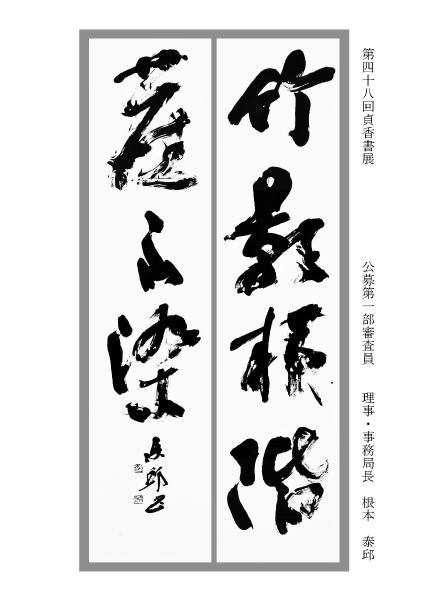 第四十八回貞香書展　公募第一部審査員　理事・事務局長　根本　泰邱
竹影掃階
塵不染
泰邱